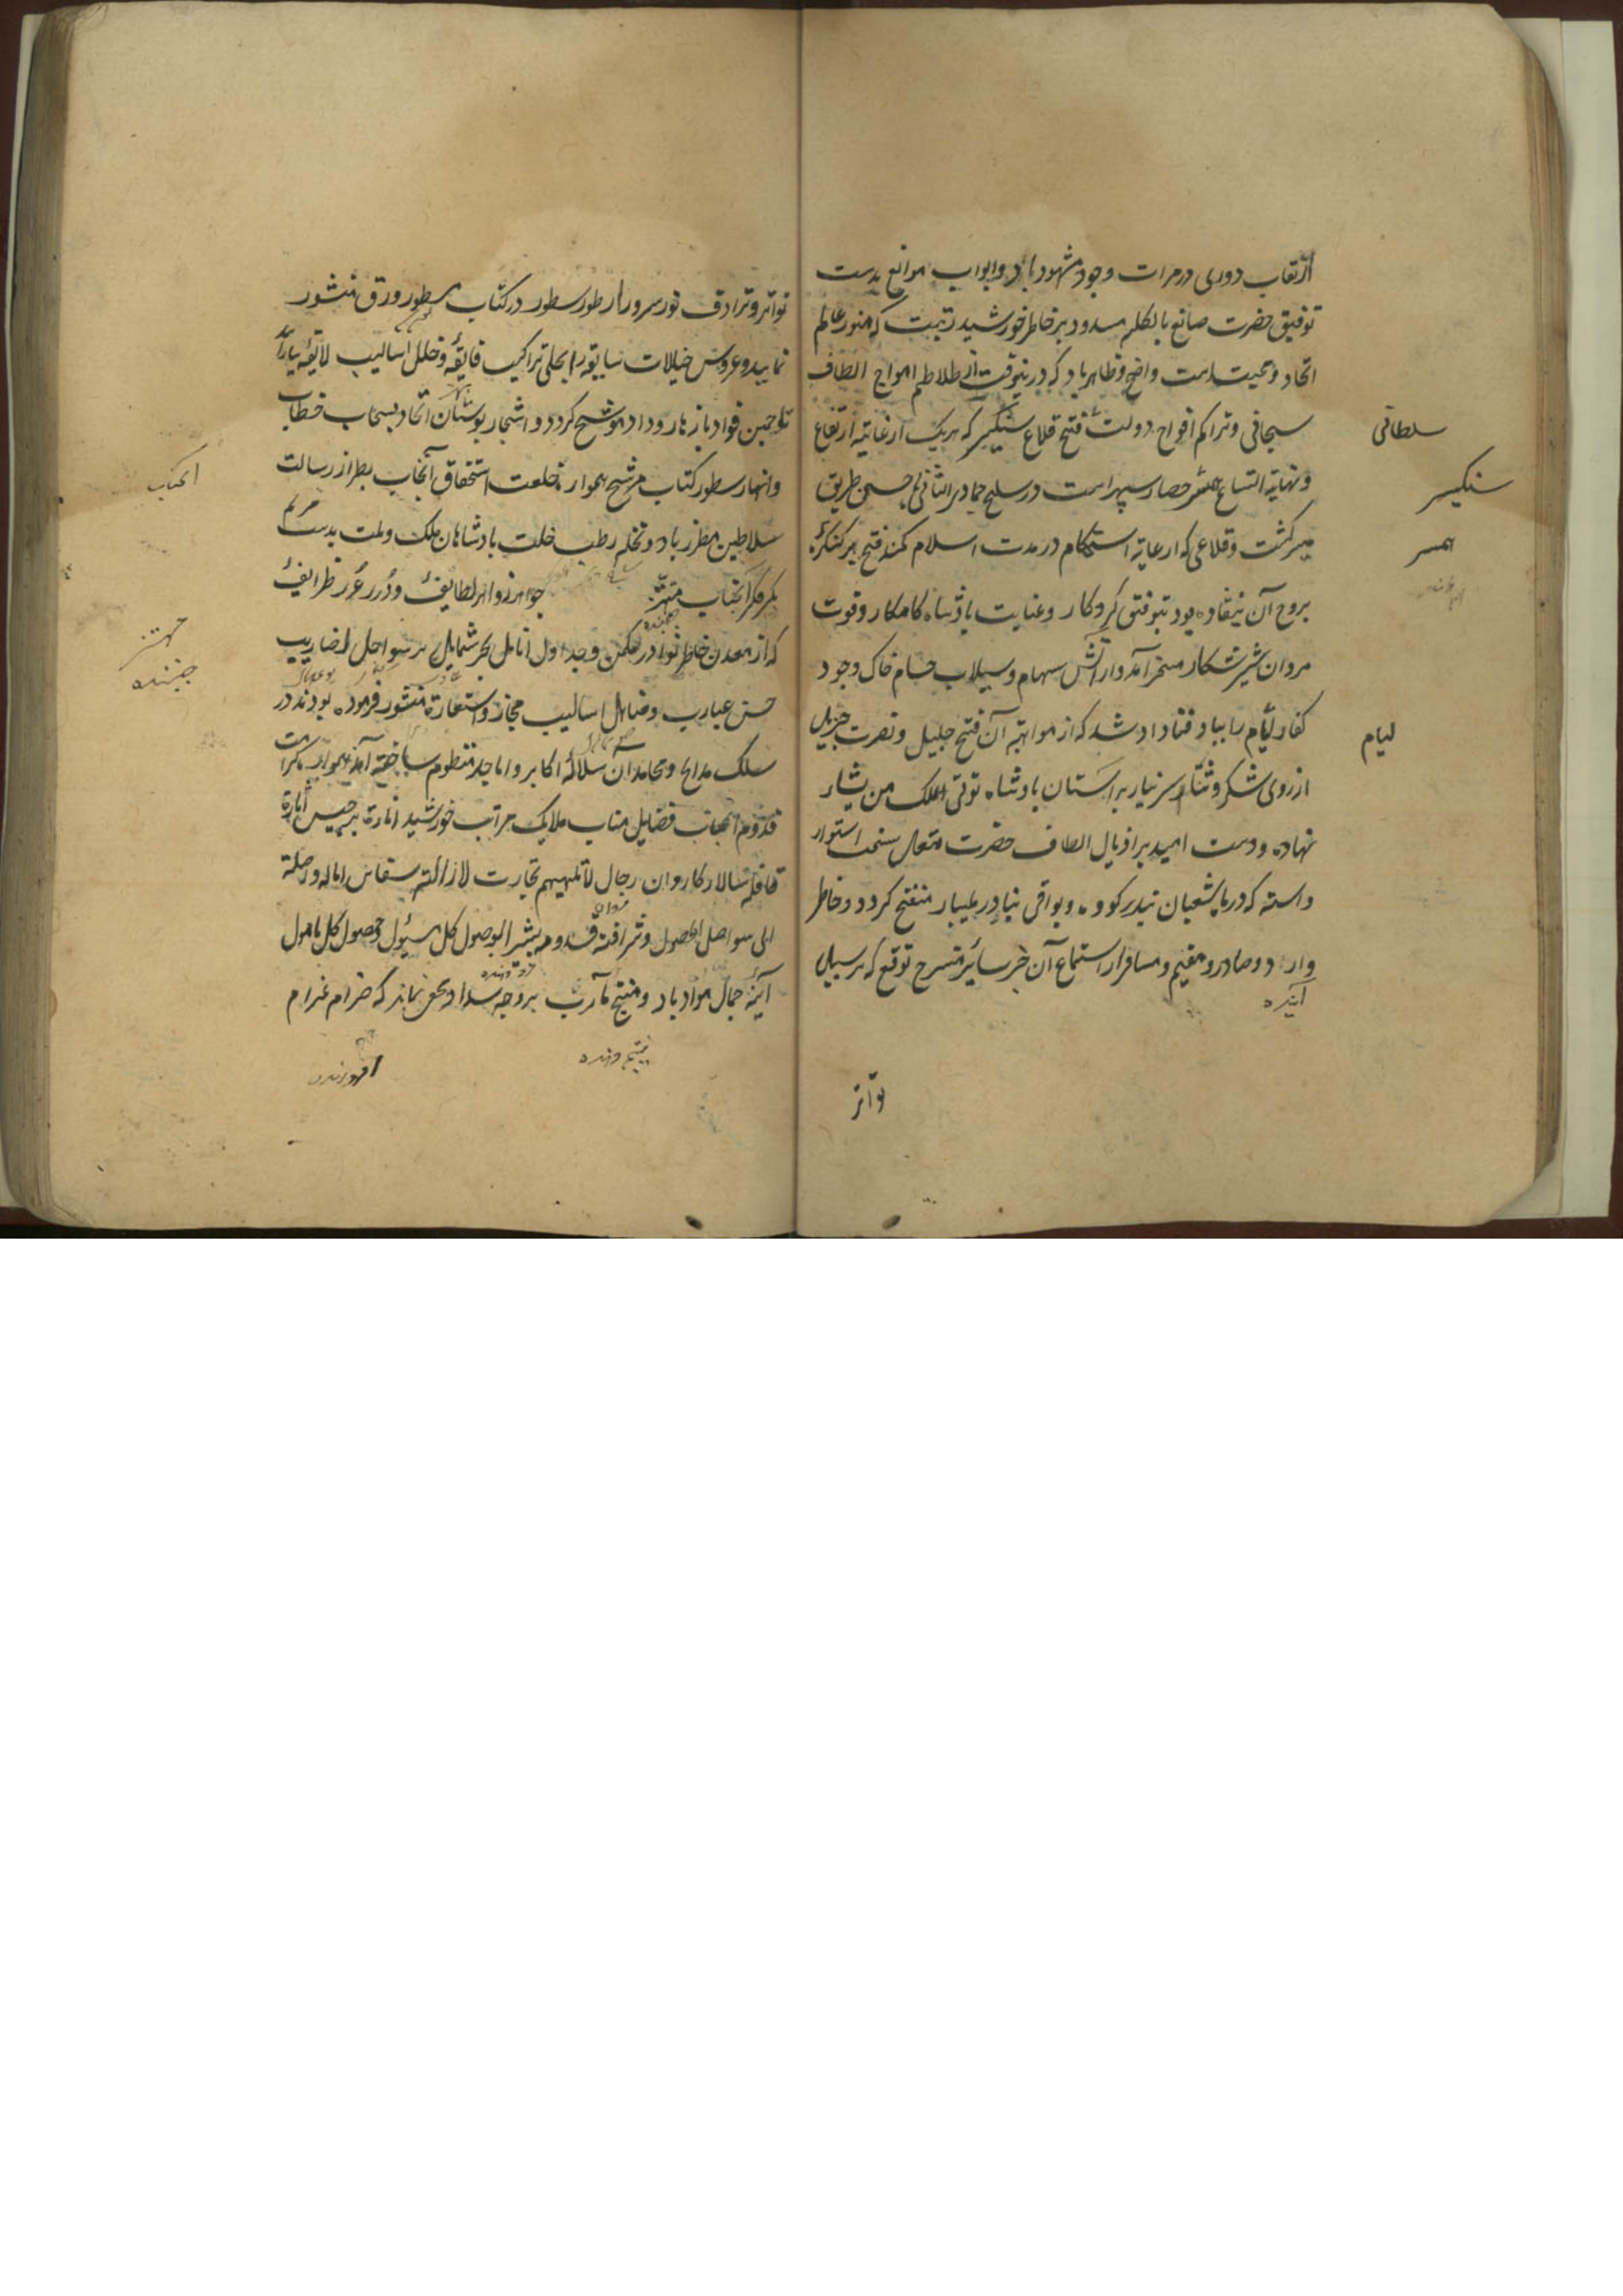 ارتقاب دوری در مرات وجود مشهود باد و ابواب موانع بدست
توفیق حضرت صانع بالکلم مسدود بر خاطر خورشید رتبت که منور عالم
اتحاد و محبت است واضح و ظاهر باد که درینوقت از طلاطم امواج الطاف
سبحانی و تراکم افواج دولت فتح قلاع سنکیسر که هریک از غایة ارتفاع
سلطانی
و نهایة اتساع همسر حصار سپهر است در سلخ جمادی الثانی باحسن طریق
سنکیسر
میسر کشت و قلاعی که از غایة استحکام در مدت اسلام کمند فتح بر کنکرهٔ
همسر
بروج آن نیفتاده بود بتوفیق کردکار و عنایت پادشاه کامکار و قوت
مردان شیر شکار مسخر آمد و از آتش سهام و سیلاب حسام خاک وجود
کفار لئام را بباد فنا داد شد که از مواهب آن فتح جلیل و نصرت جزیل
لیام
از روی شکر و ثنا سر نیاز بر آستان بادشاه توتی الملک من یشاء
نهاده و دست امید بر اذیال الطاف حضرت متعال سخت استوار
داشته که در ماه شعبان بندر کووه و بواقی بنادر ملیبار منفتح کردد و خاطر
وارد و صادر و مقیم و مسافر از استماع آن خبر سائر منسرح توقع که بر سبیل
آینده
تواتر
تواتر و ترادف نور سرور از طور سطور در کتاب مسطور و رق منشور
نمایید و عروس خیالات سابقه را بحلی تراکیب فایقه و حلل اسالیب لایقه بیاراید
تا جبین فواد بازهار وداد موشح کردد و اشجار بوستان اتحاد بسحاب خطاب
و انهار سطور کتاب مرشح همواره خلعت استحقاق آنجاب بطراز رسالت
انجناب
سلاطین مطرز باد و نخل رطب خلت بادشاهان ملک و ملت بدست
بکر فکر آنجناب مهتز جواهر زواهر لطایف و درر غرر ظرایف
مهتز
جنبنده
که از معدن خاطر نوادر مکمن و جداول انامل بحر شمایل بر سواحل اضاریب
حسن عبارت و مناهل اسالیب مجاز و استعارة منثور فرموده بودند در
سلک مدایح و محامد آن سلالهٔ اکابر و اماجد منتظم ساخته آمد همواره کرامت
قدوم آنجناب فضایل مناب ملایک مراتب خورشید انارة برجیس اثارة
قافله سالار کاروان رجال لا تلهیهم تجارت لازالت
الی سواحل الحصول و شرافت قدومه بشیر الوصول کل مسئول و حصول کل مامول
آینهٔ جمال مراد باد و منتج مآرب بر وجه سداد مخفی نماند که ضرام غرام
نتیجه دهنده
افروزنده